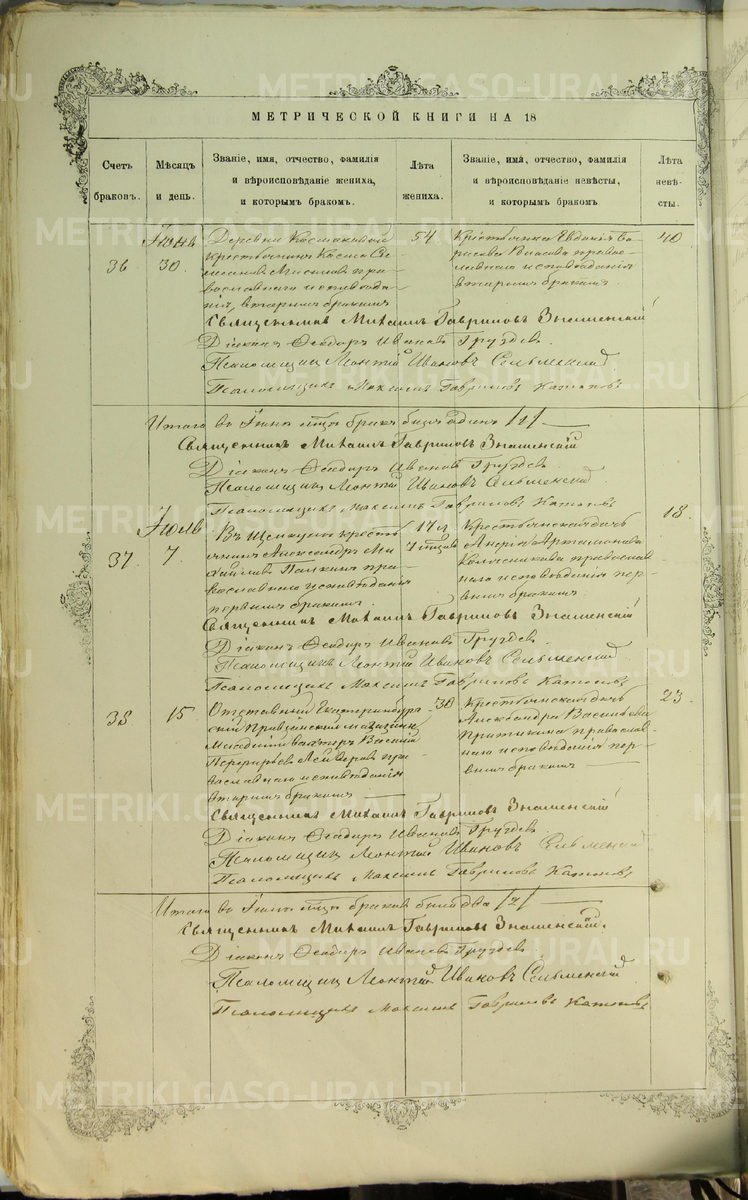 МЕТРИЧЕСКОЙ КНИГИ НА 18
Счетъ браковъ.
Мѣсяцъ и день.
Званіе, имя, отчество, фамилія
и вѣроисповѣданіе жениха,
и которымъ бракомъ.
Лѣта жениха.
Званіе, имя, отчество, фамилія
и вѣроисповѣданіе невѣсты,
и которымъ бракомъ
Лѣта невѣ-
сты.
36
Іюнь
30.
Деревни
крестьянинъ Косма
пра-
вославнаго исповѣда-
нія, вторымъ бракомъ
54
Крестьянка Евдокія
Власова православнаго исповѣданія
вторымъ бракомъ.
40
Священникъ Михаилъ Гавриловъ Знаменскій
Діаконъ Ѳеодоръ Ивановъ Груздев.
Псаломщикъ Леонтій Ивановъ Сельменскій
Псаломщикъ Максимъ Гавриловъ
Итого въ Іюнѣ м-цѣ бракъ былъ одинъ /1/
Священникъ Михаилъ Гавриловъ Знаменскій
Діаконъ Ѳеодоръ Ивановъ Груздев.
Псаломщикъ Леонтій Ивановъ Сельменскій
Псаломщикъ Максимъ Гавриловъ
37.
Іюль
7
кресть-
янинъ Александръ Ми-
хайловъ пра-
вославнаго исповѣданія
первымъ бракомъ.
17 л.
Крестьянская дочь
Артамонова
Колесникова православ-
наго исповѣданія пер-
вымъ бракомъ
18.
Священникъ Михаилъ Гавриловъ Знаменскій
Діаконъ Ѳеодоръ Ивановъ Груздев.
Псаломщикъ Леонтій Ивановъ Сельменскій
Псаломщикъ Максимъ Гавриловъ
38
15
Отставный Екатеринбург-
скій
Василій
пра-
вославнаго исповѣданія
вторымъ бракомъ
30
Крестьянская дочь
Александра
православ-
наго исповѣданія пер-
вымъ бракомъ
23
Священникъ Михаилъ Гавриловъ Знаменскій
Діаконъ Ѳеодоръ Ивановъ Груздев
Псаломщикъ Леонтій Ивановъ Сельменскій
Псаломщикъ Максимъ Гавриловъ
Итого въ Іюлѣ м-цѣ браковъ было два /2/
Священникъ Михаилъ Гавриловъ Знаменскій.
Діаконъ Ѳеодоръ Ивановъ Груздев.
Псаломщикъ Леонтій Ивановъ Сельменскій
Псаломщикъ Максимъ Гавриловъ
METRIKI.GASO-URAL.RU